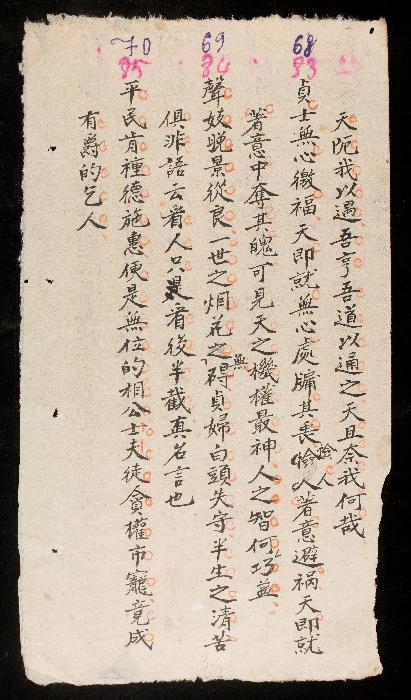 天阨我以遇吾亨吾道以通之天且奈我何哉
68
83
貞士無心徼福天即就無心處牖其衷憸人著意避禍天即就
憸人
著意中奪其魄可見天之機權最神人之智何巧益
69
84
聲妓晚景從良一世之烟花之碍貞婦白頭失守半生之清苦
無
俱非語云看人只是看後半截真名言也
70
85
平民肯種德施惠便是無位的相公士夫徒貪權市寵竟成
有爵的乞人